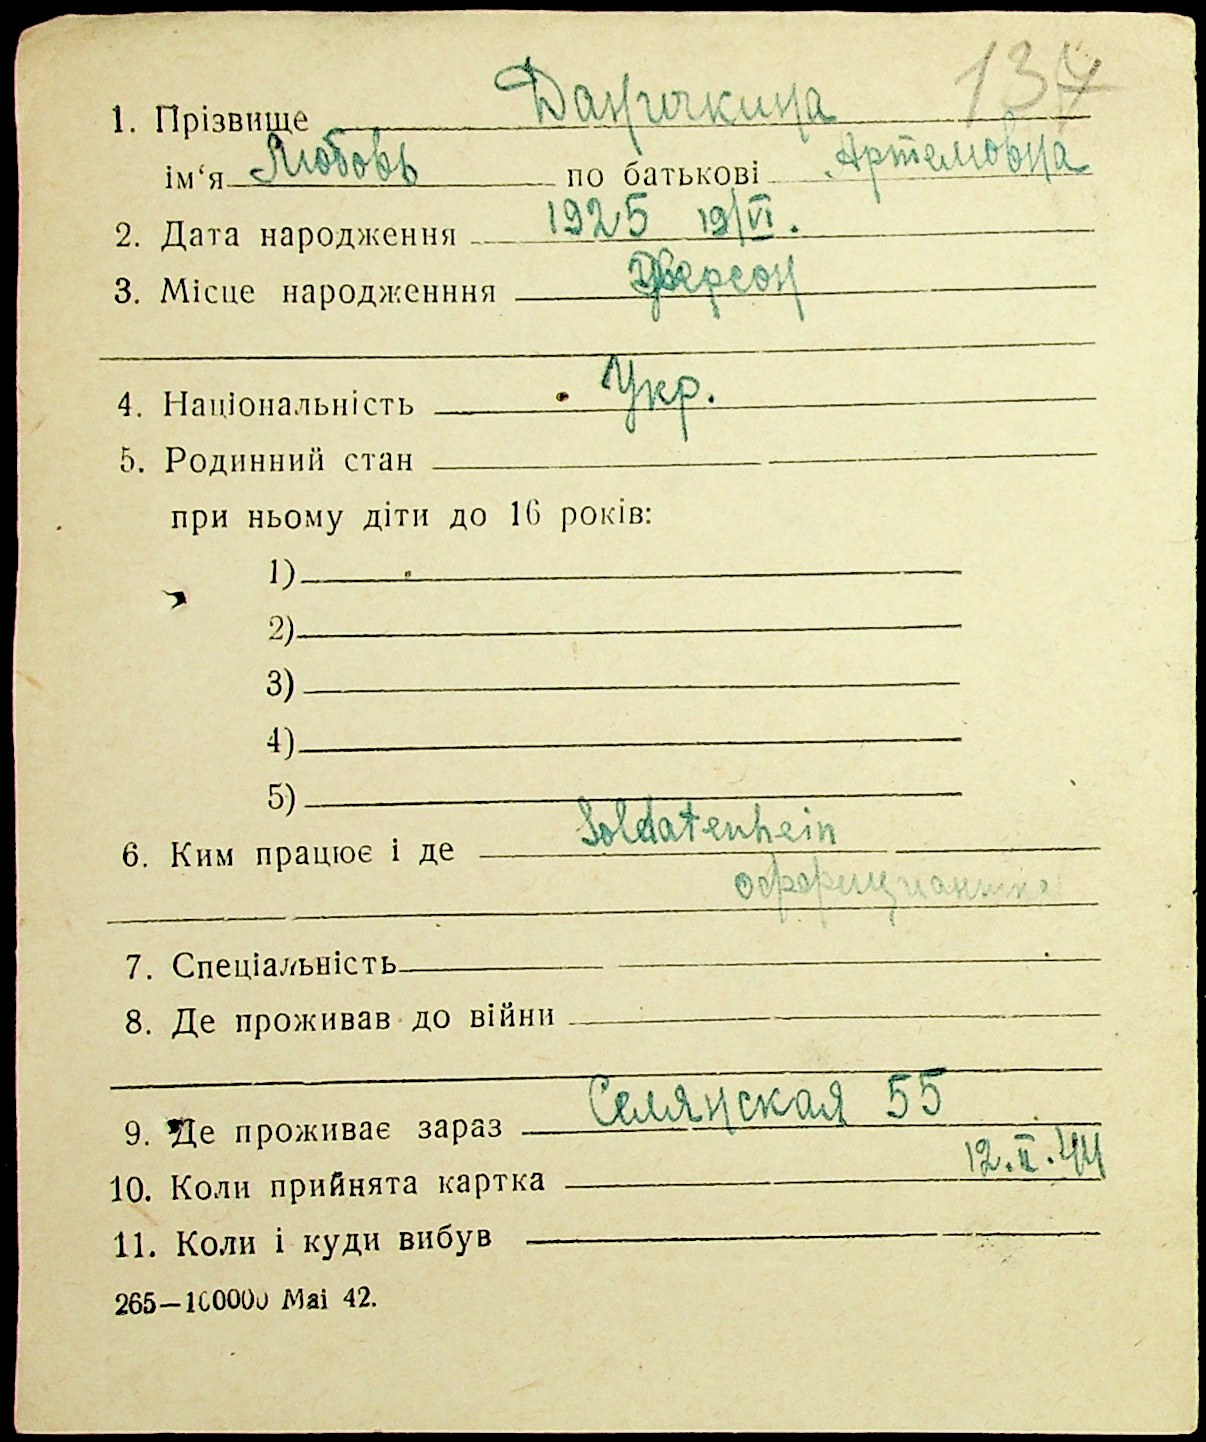 137
1. Прізвище Даничкина
ім‘я Любовь по батькові Артемовна
2. Дата народження 1925 19/VI.
3. Місце народженння Херсон
4. Національність Укр.
5. Родинний стан
при ньому діти до 16 років:
1)
2)
3)
4)
5)
6. Ким працює і де Soldatenhein
оффициантка
7. Спеціальність
8. Де проживав до війни
9. Де проживає зараз Селянская 55
10. Коли прийнята картка 12.II.44
11. Коли і куди вибув
265—100000 Mai 42.